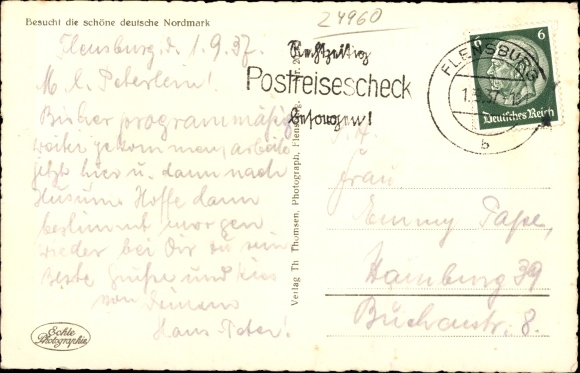 Besucht die schöne deutsche Nordmark
24960
Flensburg, d. 1.9.37.
M. l. Peterlein!
Bisher programmäßig
weiter gekommen, arbeite
jetzt hier u. dann nach
Husum. Hoffe dann
bestimmt morgen
wieder bei Dir zu sein
Beste Grüße und Kuss
von Deinem
Hans Peter!
Echte
Photographie
Verlag Th. Thomsen, Photograph, Flensburg
Rechtzeitig
Postreisescheck
besorgen!
FLENSBURG
b
6 6
Deutsches Reich
Frau
Emmy Pape,
Hamburg 39
Buchaustr. 8.